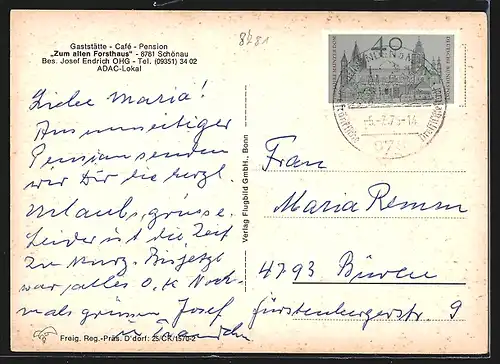 Gaststätte - Café - Pension
„Zum alten Forsthaus" - 8781 Schönau
Bes. Josef Endrich OHG - Tel. (09351) 34 02
ADAC-Lokal
8781
Liebe Maria!
Aus
Pension senden
wir Dir die herzl.
Urlaubsgrüsse.
Leider ist die Zeit
zu kurz. Bis jetzt
war alles o.k. Noch-
mals grüssen Josef
u.
Verlag Flugbild GmbH., Bonn
40
-6.-7.75-14
Frau
Maria Remm
4793 Büren
Fürstenbergerstr. 9
Freig. Reg.-Präs. D'dorf: 25/CK/1570-2